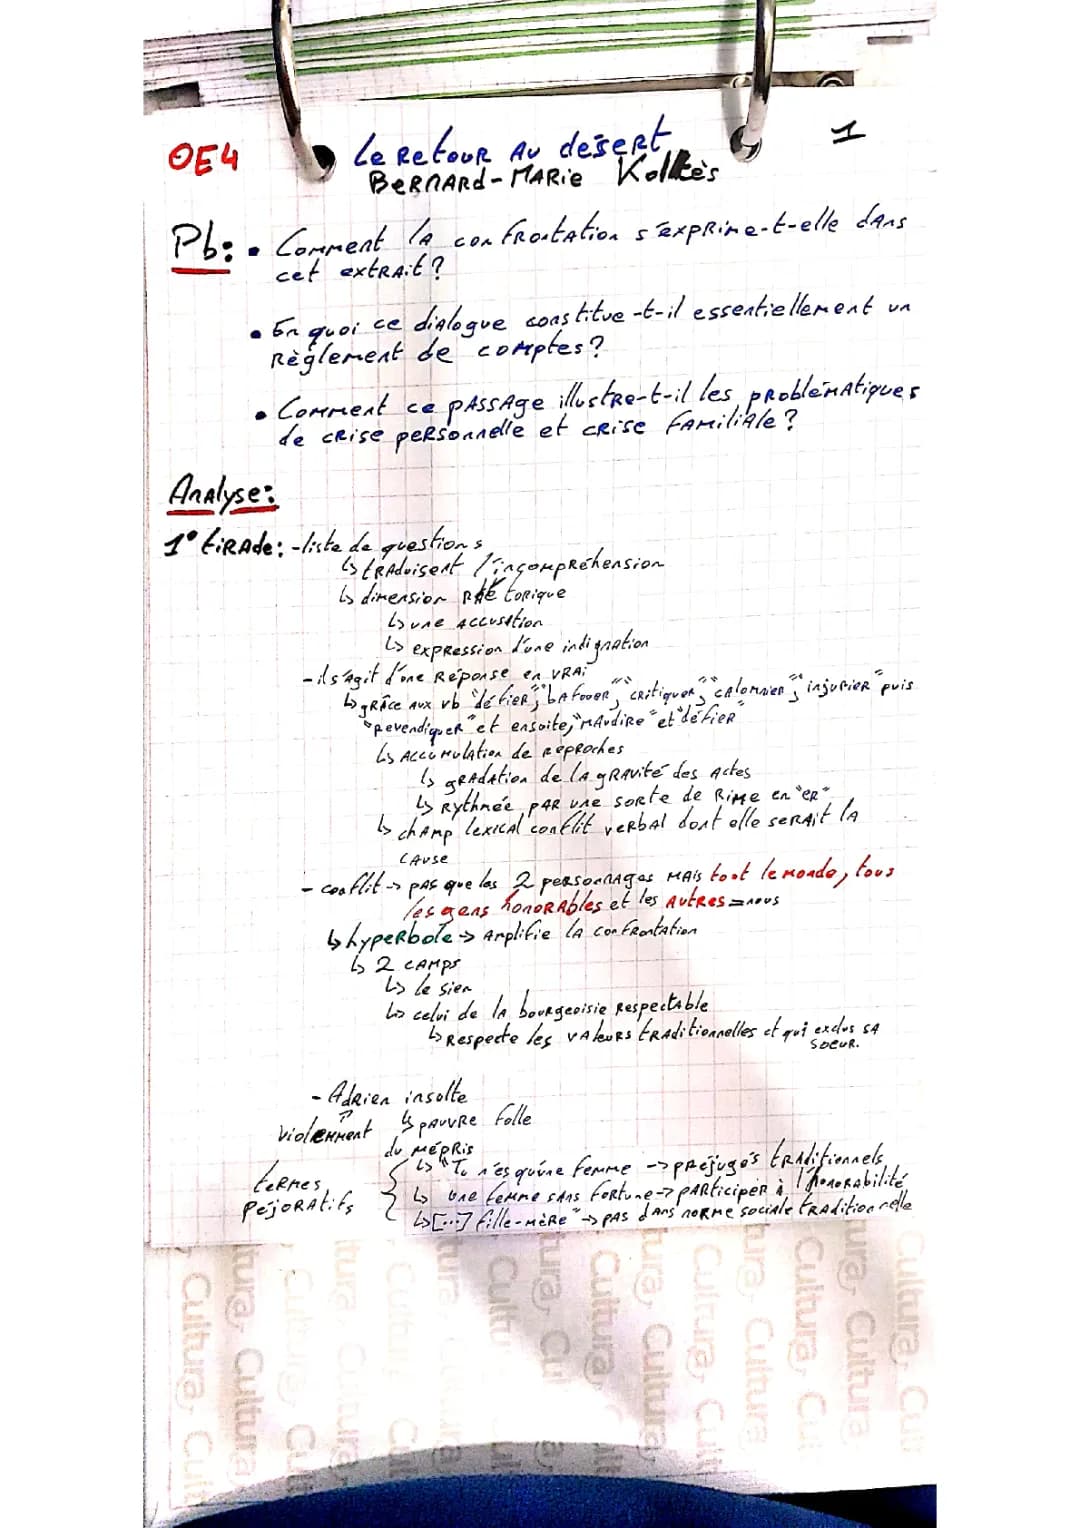 OE4
Le Retour Au désert
1
Bernard-Marie Koltès
Pb: • Comment la confrontation s'exprime-t-elle dans
cet extrait?
• En quoi ce dialogue constitue-t-il essentiellement un
Règlement de comptes?
• Comment ce passage illustre-t-il les problématiques
de crise personnelle et crise familiale?
Analyse:
1° tirade: -liste de questions
↳ traduisent l'incompréhension
↳ dimension rhétorique
↳ une accusation
↳ expression d'une indignation
- ils'agit d'une Réponse en vrai
↳ grâce aux vb "défier", "bafouer", "critiquer", "calomnier", "injurier" puis
"revendiquer" et ensuite, "maudire" et "défier"
↳ Accumulation de reproches
↳ gradation de la gravité des actes
↳ Rythmée par une sorte de Rime en "er"
↳ champ lexical conflit verbal dont elle serait la
cause
- conflit → pas que les 2 personnages mais tout le monde, tous
les gens honorables et les autres = nous
↳ hyperbole → Amplifie la confrontation
↳ 2 camps
↳ le sien
↳ celui de la bourgeoisie respectable
↳ Respecte les valeurs traditionnelles et qui exclus sa
soeur.
- Adrien insulte
violemment ↳ pauvre folle
du mépris
↳ "Tu n'es qu'une femme → préjugés traditionnels
termes
↳ une femme sans fortune → participer à l'honorabilité
péjoratifs
↳ [...] fille-mère" → pas dans norme sociale traditionnelle
Cultura Cultura Cultura Cultura Cultura